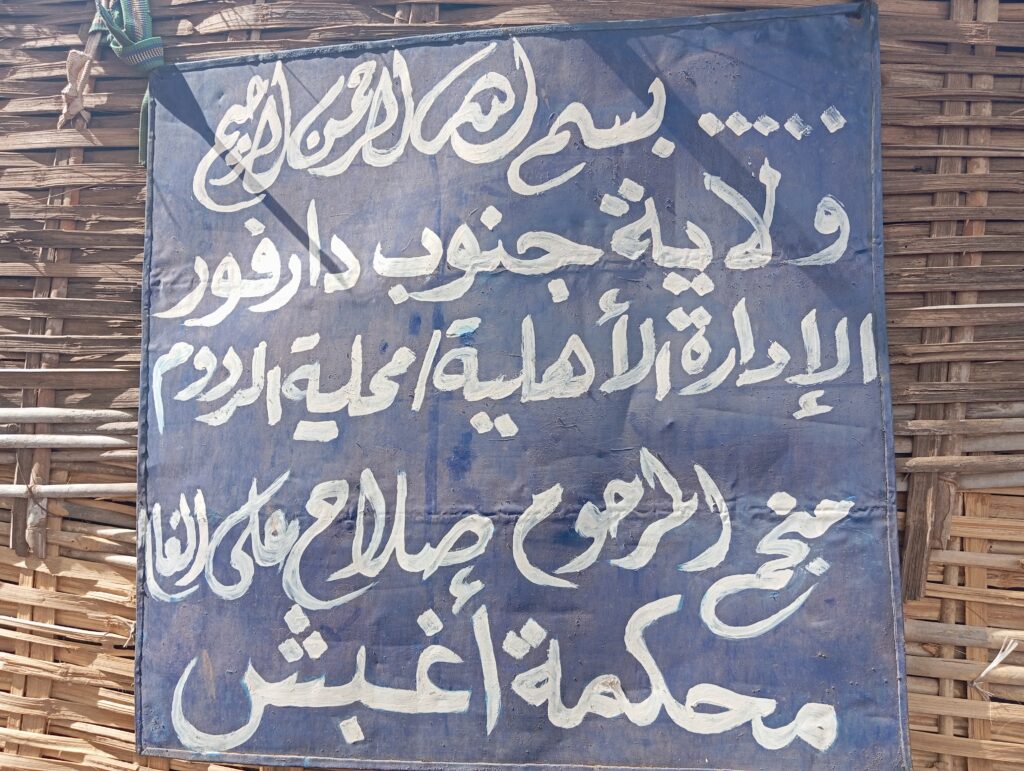 بسم الله الرحمن الرحيم
ولاية جنوب دارفور
الإدارة الأهلية / محلية الردوم
المرحوم صلاح على الغا
محكمة أغبش